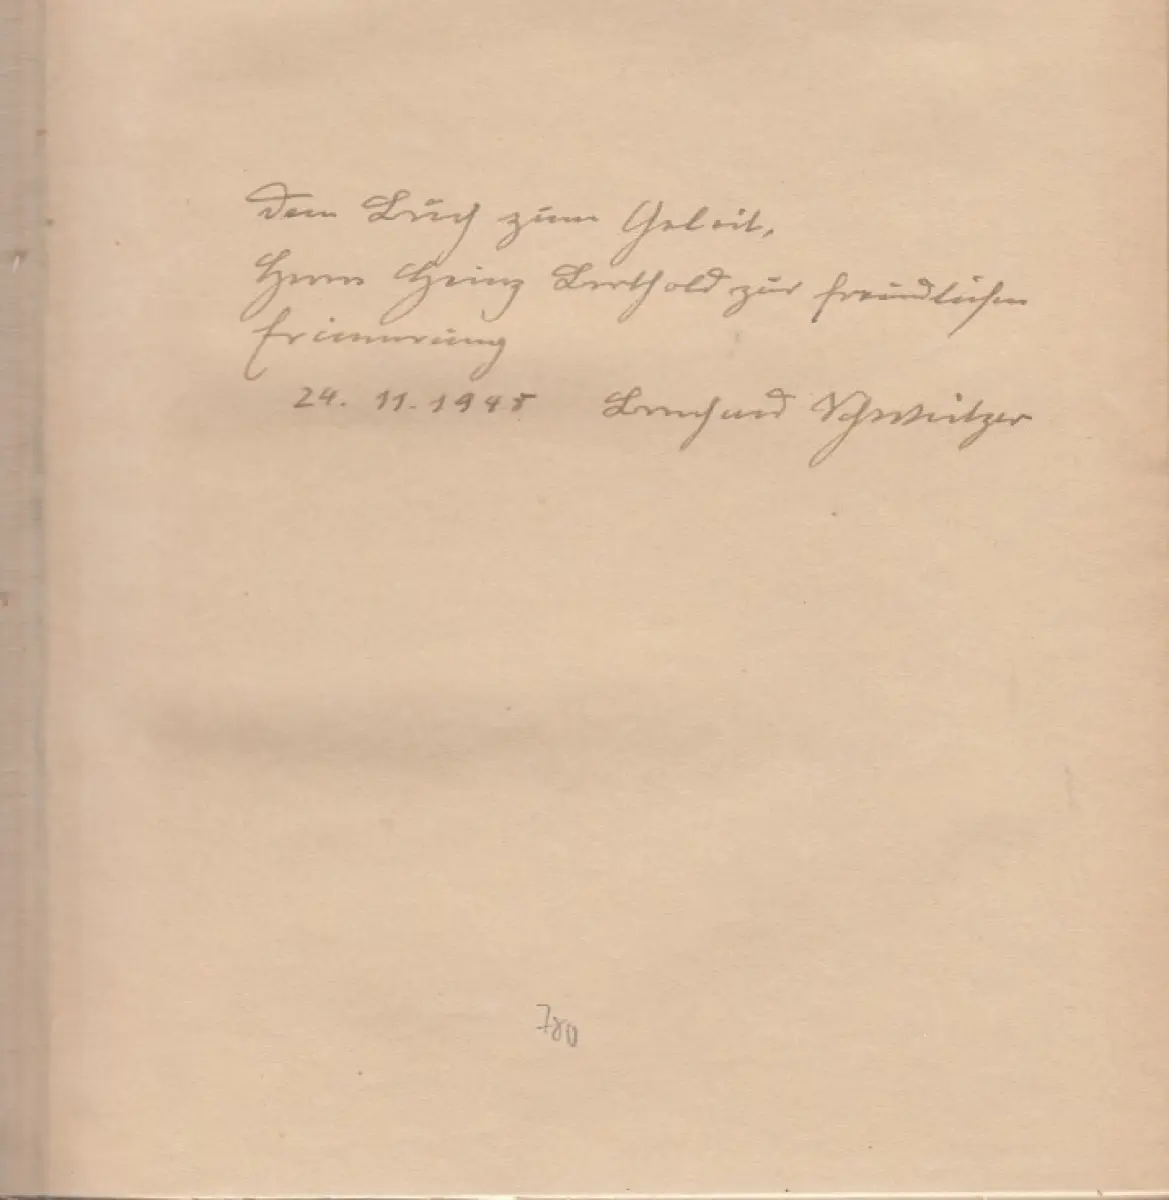 Dem Buch zum Geleit,
Herrn Heinz Berthold zur freundlichen
Erinnerung
24. 11. 1945 Bernhard Schweitzer
780